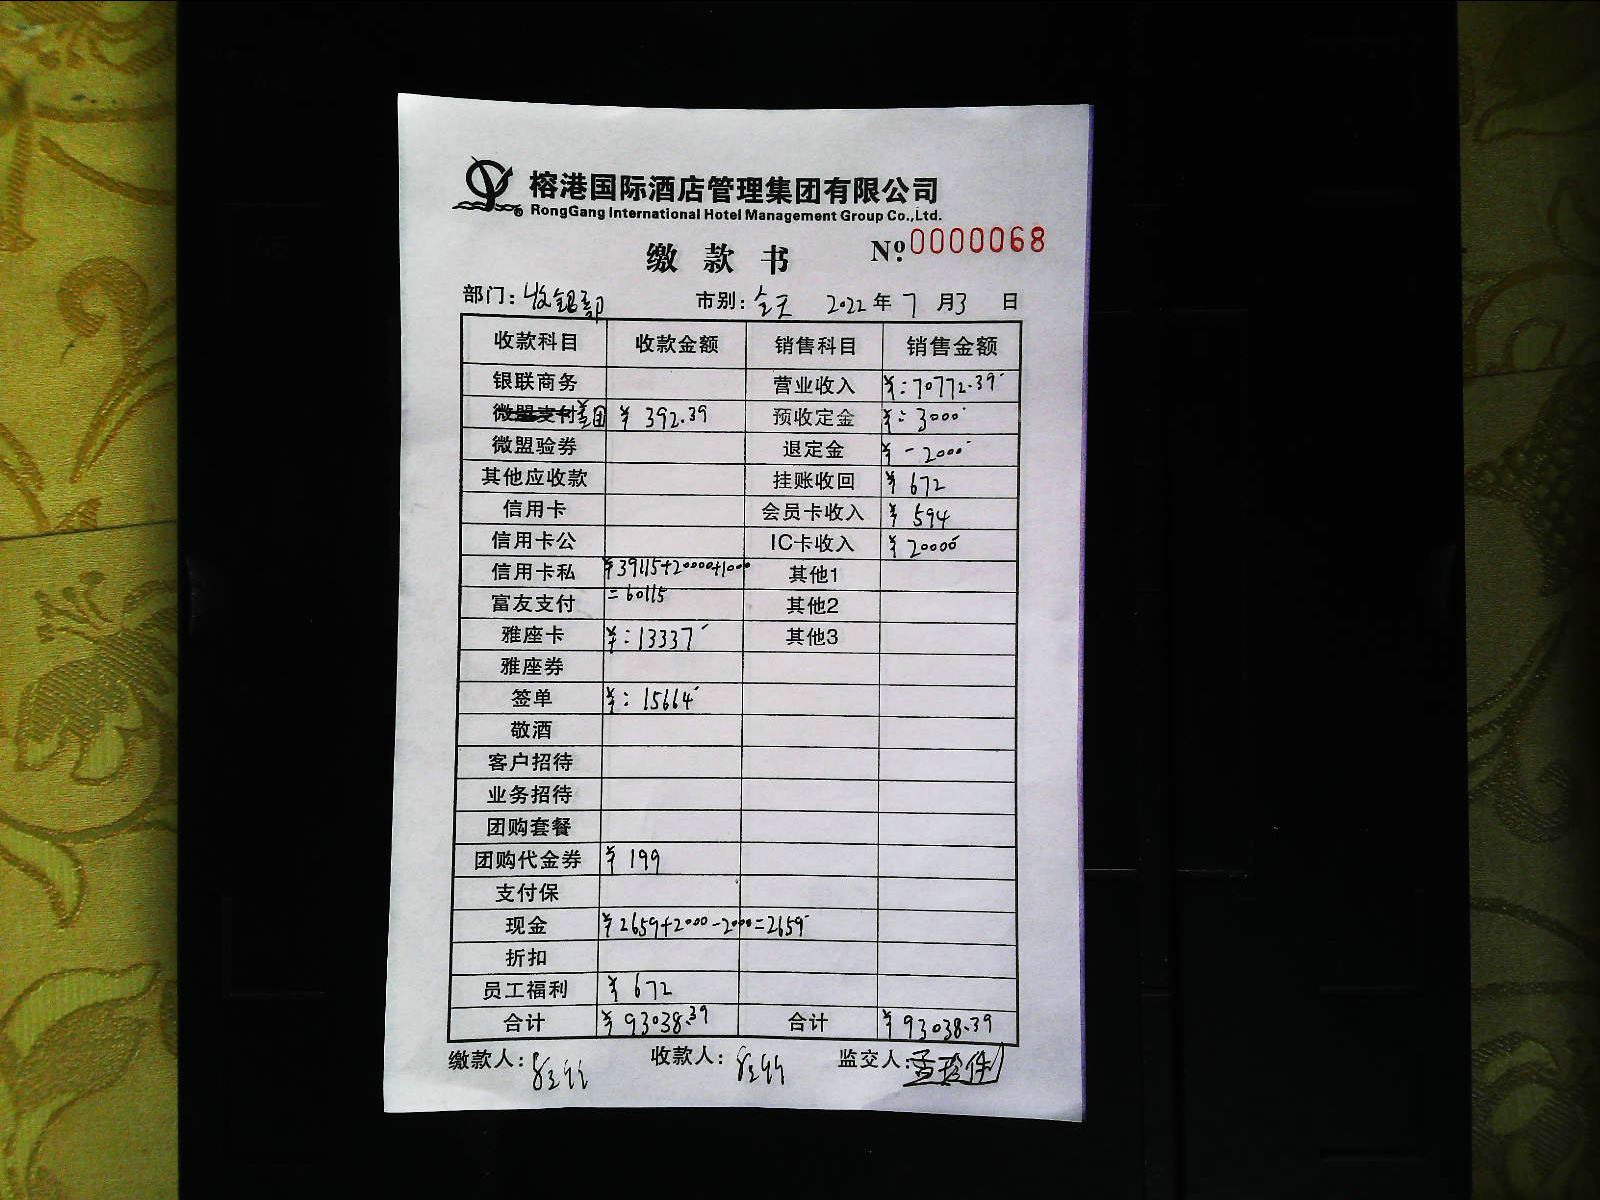 榕港国际酒店管理集团有限公司
RongGang International Hotel Management Group Co.,Ltd.
缴款书 №.0000068
部门：收银部 市别：全天 2022年7月3日
收款科目 收款金额 销售科目 销售金额
银联商务 营业收入 ¥：70772.39
微盟支付美团 ¥ 392.39 预收定金 ¥：3000
微盟验券 退定金 ¥ -2000
其他应收款 挂账收回 ¥ 672
信用卡 会员卡收入 ¥ 594
信用卡公 IC卡收入 ¥ 20000
信用卡私 ¥39115+20000+1000 其他1
富友支付 =60115 其他2
雅座卡 ¥：13337 其他3
雅座券
签单 ¥：15664
敬酒
客户招待
业务招待
团购套餐
团购代金券 ¥ 199
支付保
现金 ¥2659+2000-2000=2659
折扣
员工福利 ¥ 672
合计 ¥93038.39 合计 ¥93038.39
缴款人： 收款人： 监交人：